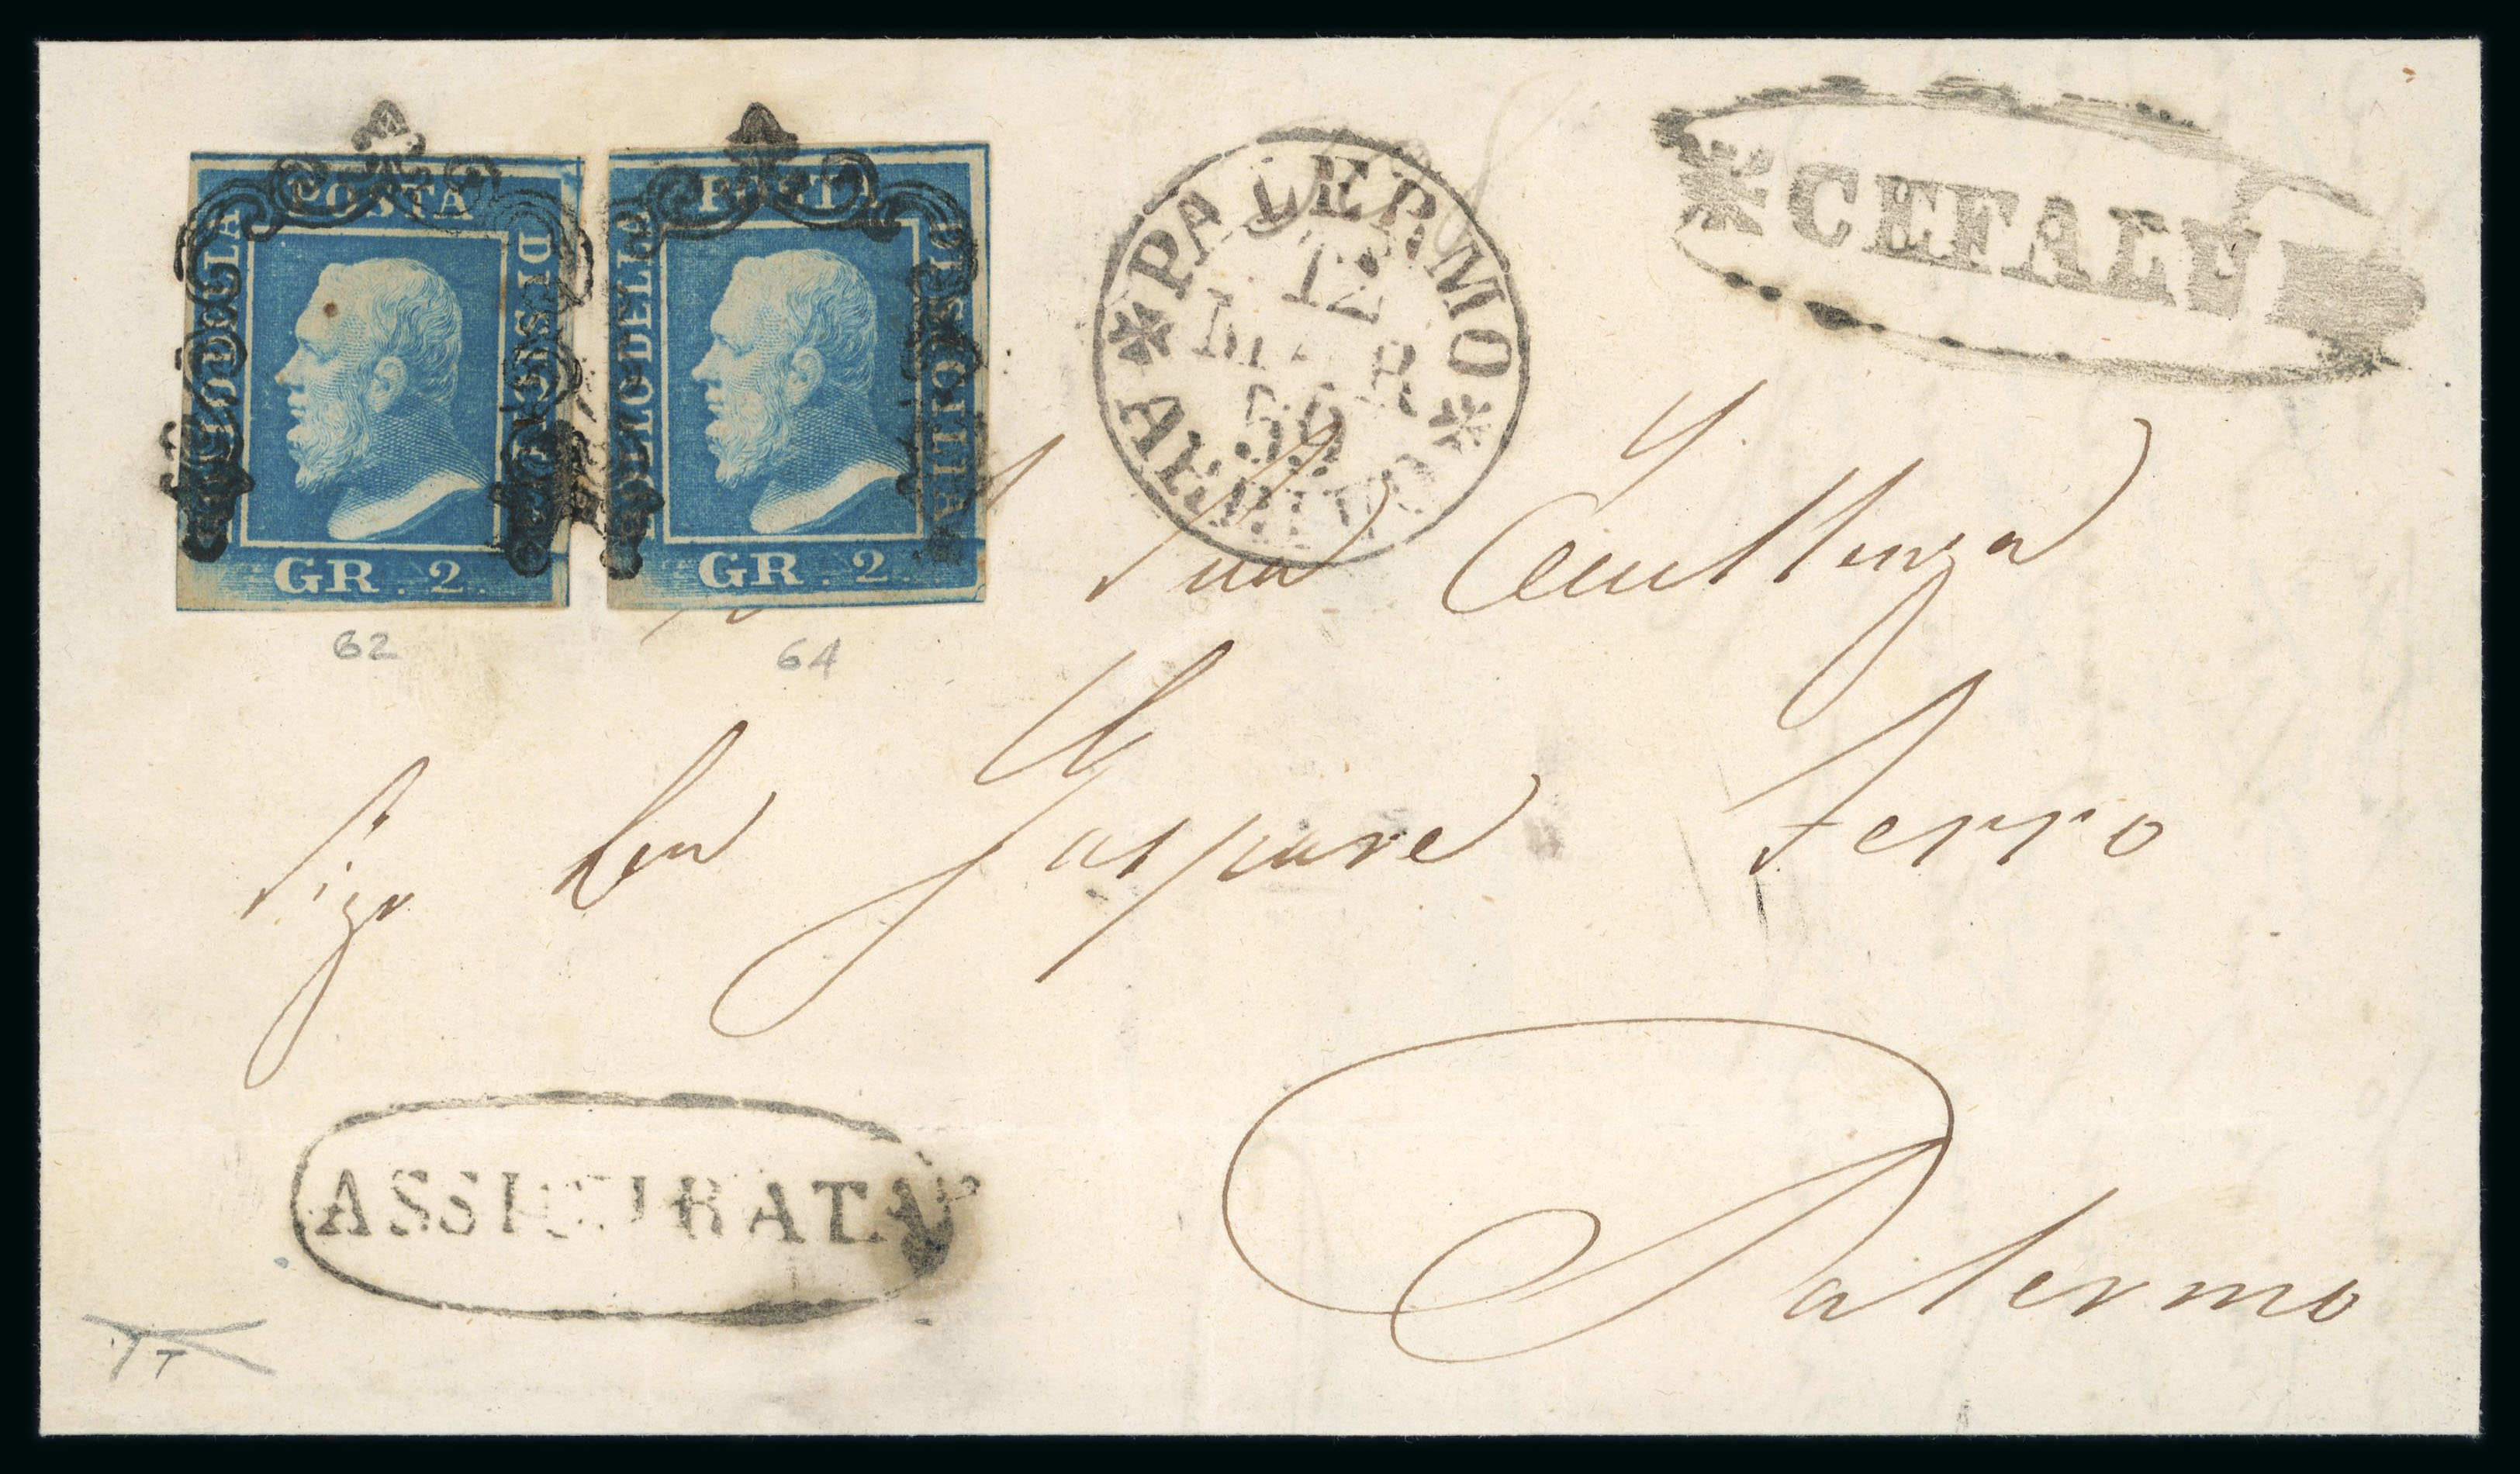 POSTA
BOLLO DELLA
DI SICILIA
GR. 2.
POSTA
BOLLO DELLA
DI SICILIA
GR. 2.
62
64
PALERMO
12
59
ARRIVO
CEFALÙ
Sua Eccellenza
Sigr Don Gaspare Ferro
Palermo
ASSICURATA